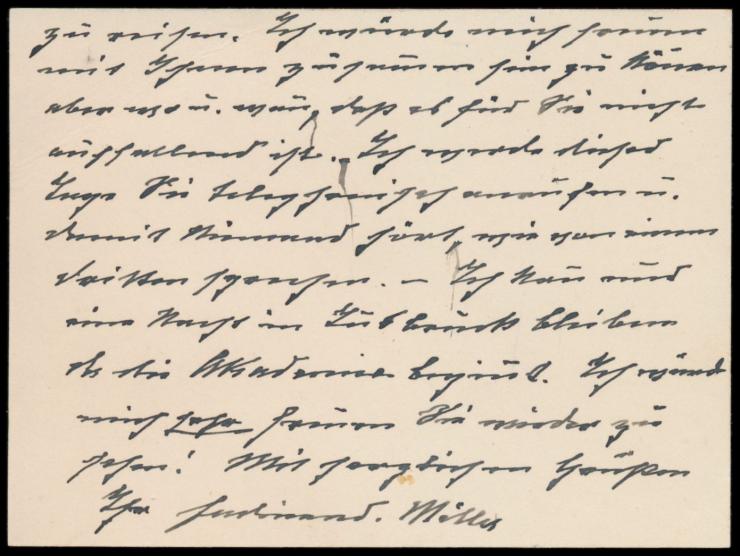 zu reisen. Ich würde mich freuen
mit Ihnen zusammen sein zu können
aber wo u. wann, daß es für Sie nicht
auffallend ist. – Ich werde dieser
Tage Sie telephonisch anrufen u.
damit Niemand hört, wie von einem
dritten sprechen. – Ich kann nur
eine Nacht in Innsbruck bleiben
da die Akademie beginnt. Ich würde
mich sehr freuen Sie wieder zu
sehen! Mit herzlichen Grüßen
Ihr Ferdinand. Möller